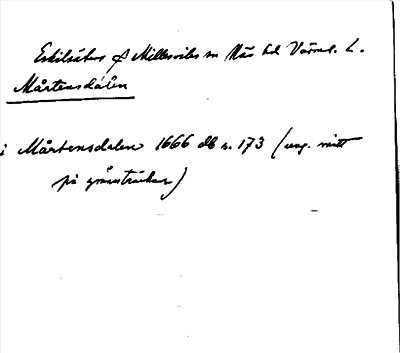 Eskilsäters o Millesviks sn Näs hd Värml. L.
Mårtensdalen
i Mårtensdalen 1666 db n. 173 (ung. mitt
på gränssträckan)